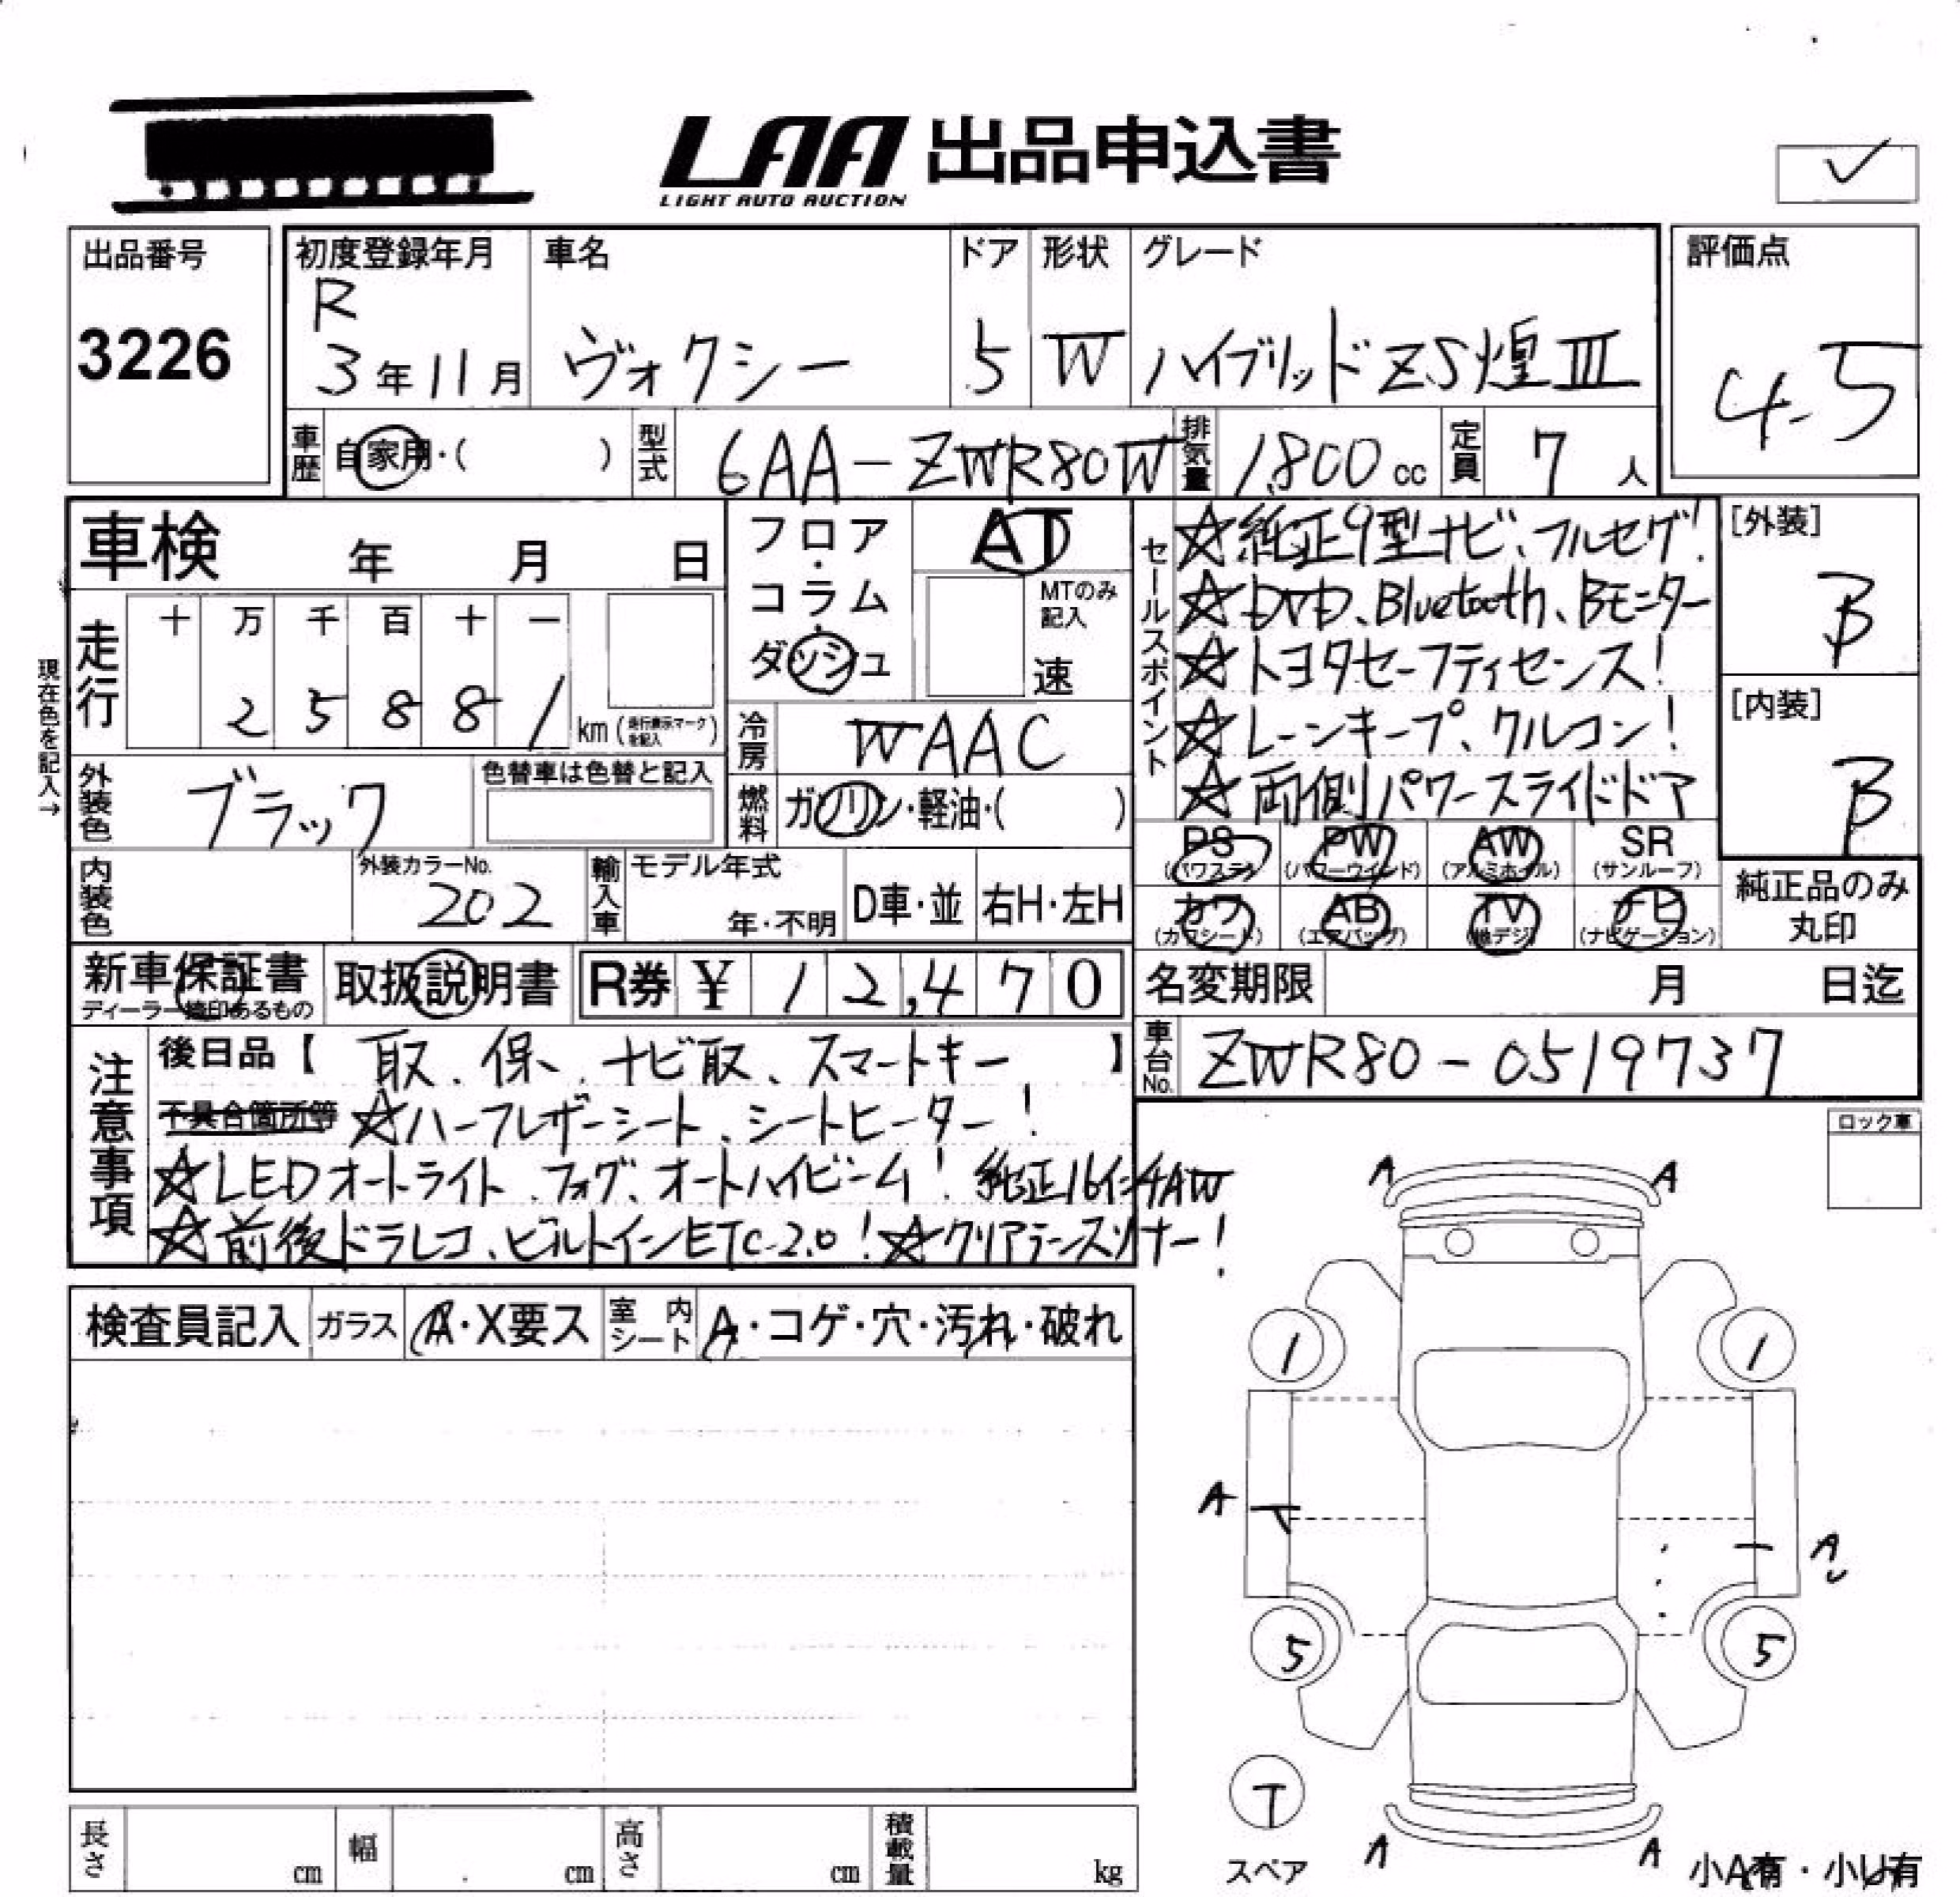 LAA 出品申込書
LIGHT AUTO AUCTION
出品番号
3226
初度登録年月
R
3年11月
車名
ヴォクシー
ドア
5
形状
W
グレード
ハイブリッドZS煌III
評価点
4.5
車歴
自家用・( )
型式
6AA-ZWR80W
排気量
1,800cc
定員
7人
車検 年 月 日
走行
十 万 千 百 十 一
2 5 8 8 1
km(走行表示マークを記入)
現在色を記入→
フロア・コラム・ダッシュ
AT
MTのみ記入
速
冷房
WAAC
燃料
ガソリン・軽油・( )
外装色
ブラック
色替車は色替と記入
内装色
外装カラーNo.
202
輸入車
モデル年式
年・不明
D車・並
右H・左H
セールスポイント
☆純正9型ナビ、フルセグ!
☆DVD、Bluetooth、Bモニター
☆トヨタセーフティセンス!
☆レーンキープ、クルコン!
☆両側パワースライドドア
[外装]
B
[内装]
B
PS (パワステ) PW (パワーウインド) AW (アルミホイル) SR (サンルーフ)
カワ (カワシート) AB (エアバッグ) TV (地デジ) ナビ (ナビゲーション)
純正品のみ丸印
新車保証書
ディーラー捺印あるもの
取扱説明書
R券 ¥12,470
名変期限 月 日迄
車台No.
ZWR80-0519737
注意事項
後日品【 取、保、ナビ取、スマートキー 】
不具合箇所等 ☆ハーフレザーシート、シートヒーター!
☆LEDオートライト、フォグ、オートハイビーム! 純正16インチAW
☆前後ドラレコ、ビルトインETC2.0!☆クリアランスソナー!
ロック車
検査員記入
ガラス
A・X要ス
室内シート
A・コゲ・穴・汚れ・破れ
A A
1 1
A
A
5 5
T
スペア
A A
小A有・小U有
長さ cm 幅 cm 高さ cm 積載量 kg